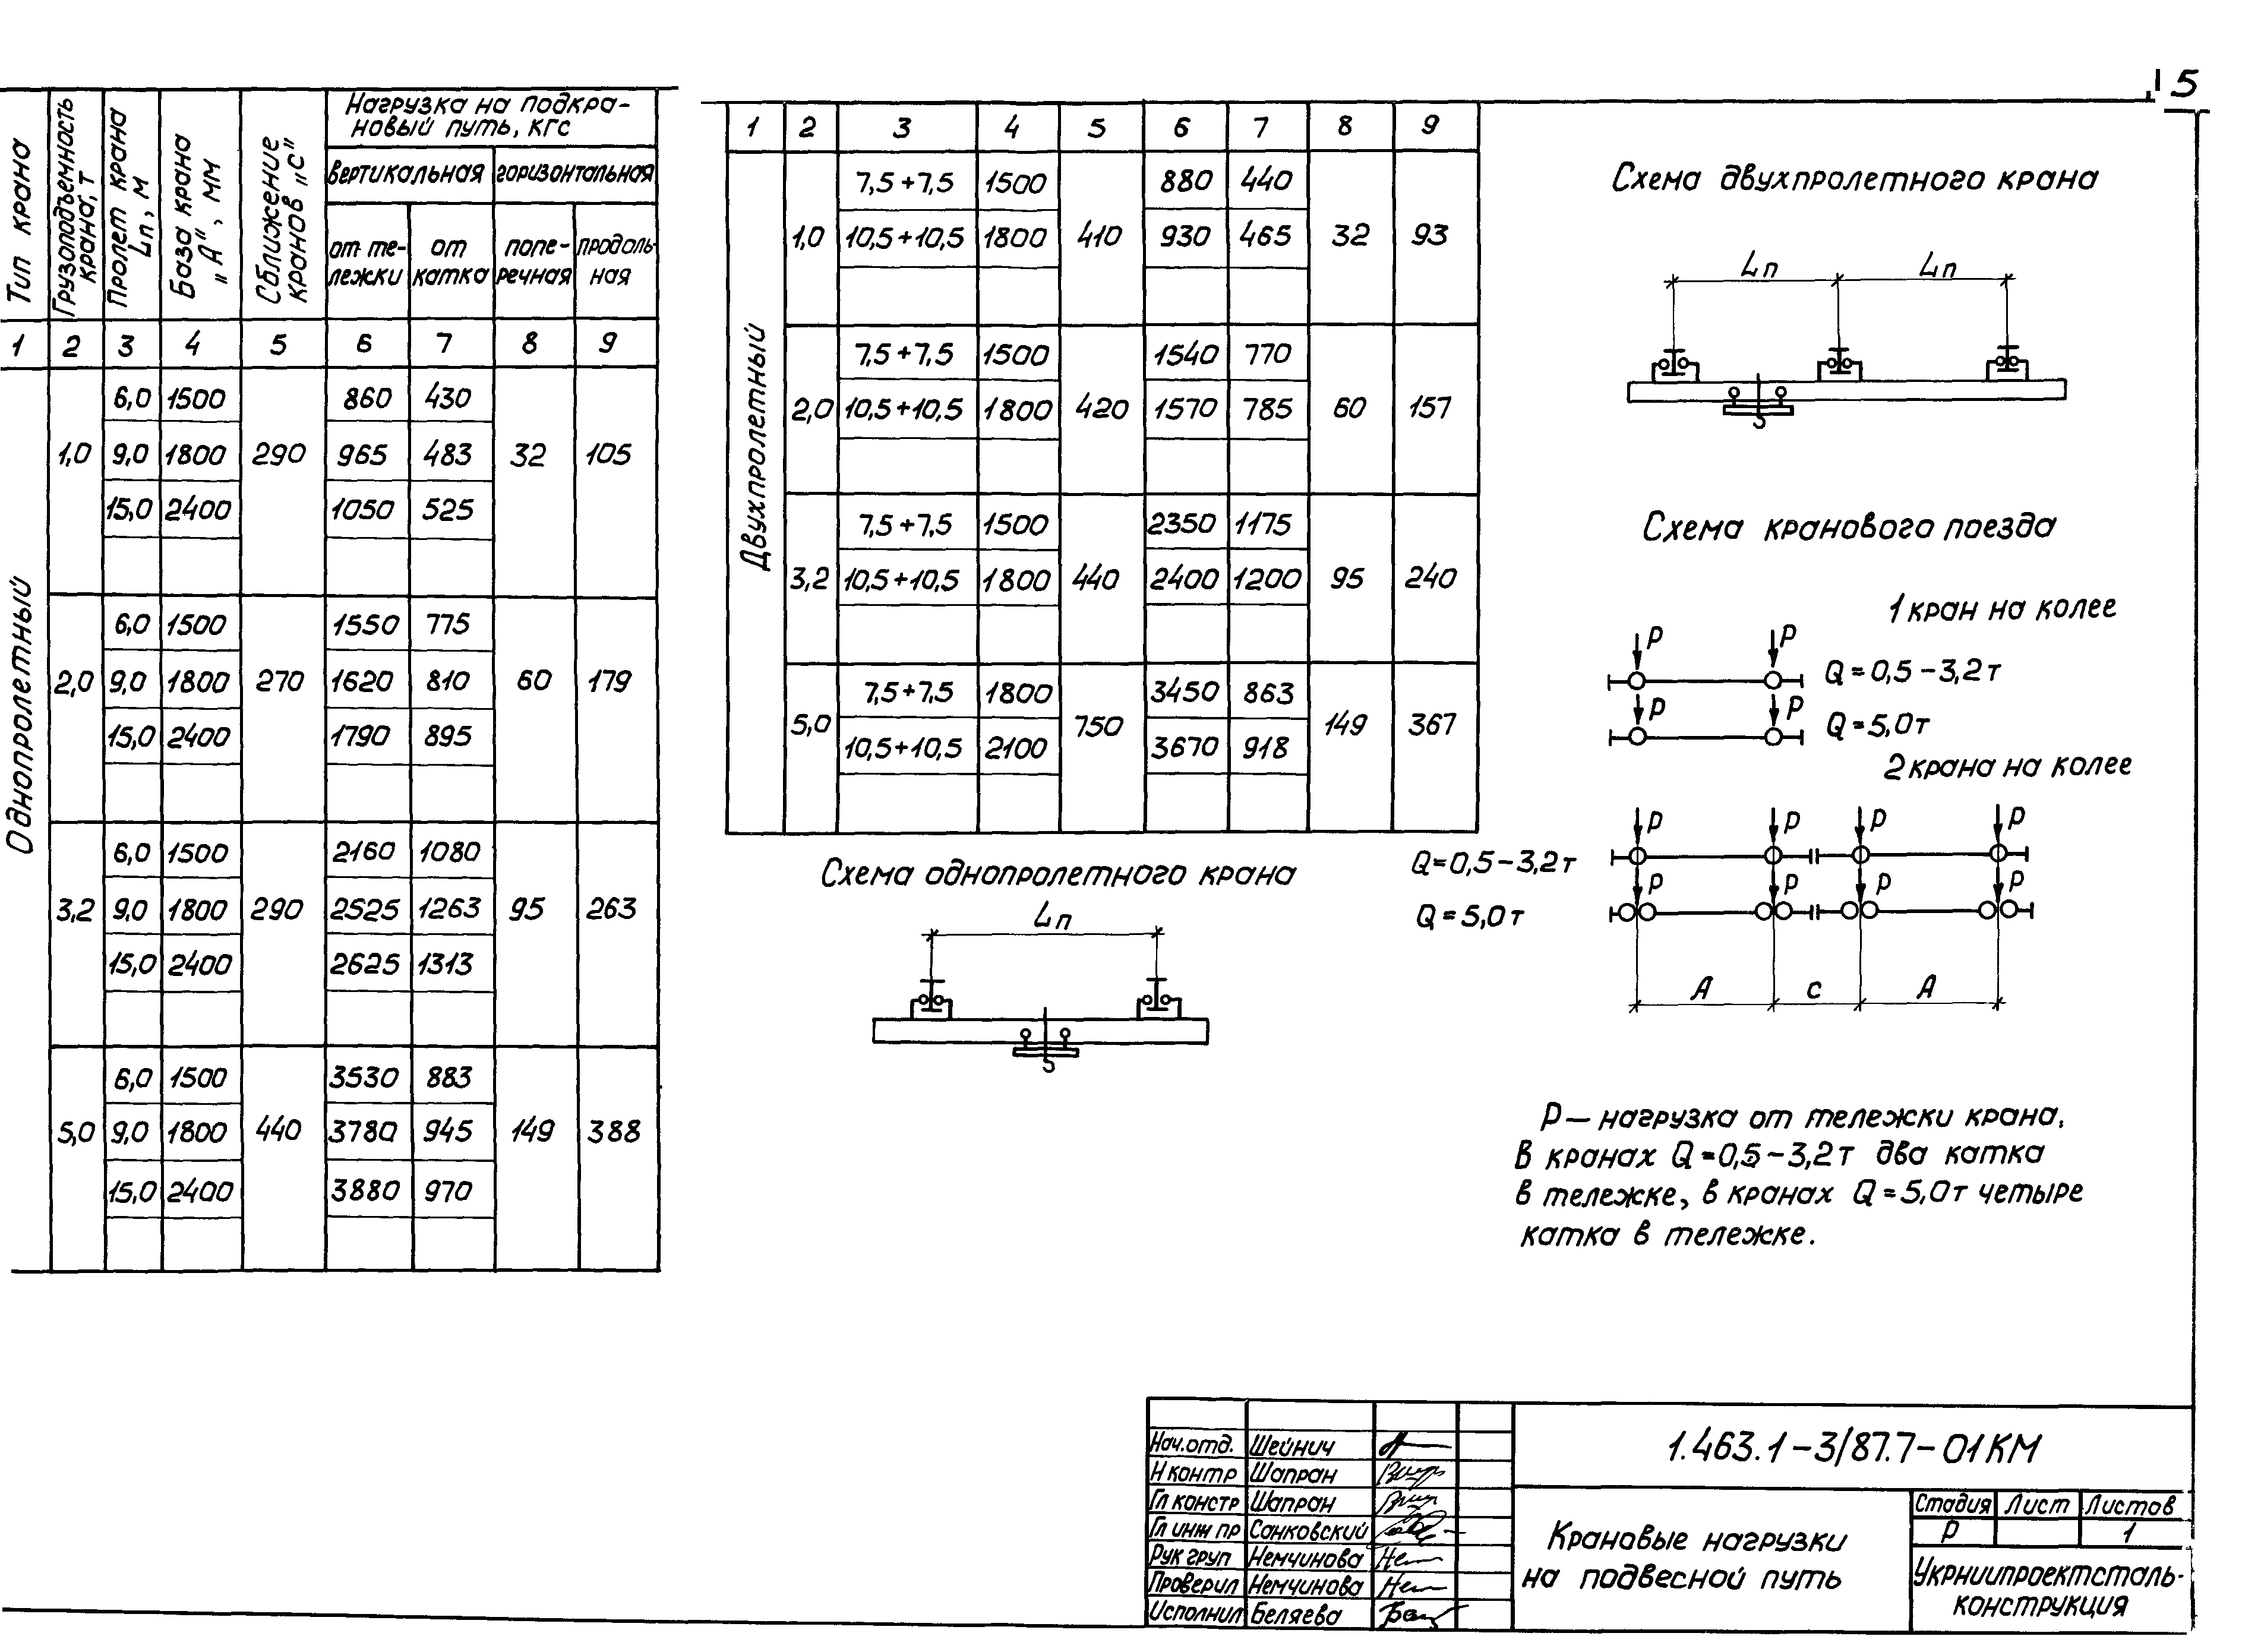 5
Тип крана
Грузоподъемность крана, т
Пролет крана Lп, м
База крана „А", мм
Сближение кранов „с"
Нагрузка на подкра-
новый путь, кгс
вертикальная горизонтальная
от те-
лежки
от
катка
попе-
речная
продоль-
ная
1 2 3 4 5 6 7 8 9
Однопролетный
6,0 1500 860 430
1,0 9,0 1800 290 965 483 32 105
15,0 2400 1050 525
6,0 1500 1550 775
2,0 9,0 1800 270 1620 810 60 179
15,0 2400 1790 895
6,0 1500 2160 1080
3,2 9,0 1800 290 2525 1263 95 263
15,0 2400 2625 1313
6,0 1500 3530 883
5,0 9,0 1800 440 3780 945 149 388
15,0 2400 3880 970
1 2 3 4 5 6 7 8 9
Двухпролетный
7,5+7,5 1500 880 440
1,0 10,5+10,5 1800 410 930 465 32 93
7,5+7,5 1500 1540 770
2,0 10,5+10,5 1800 420 1570 785 60 157
7,5+7,5 1500 2350 1175
3,2 10,5+10,5 1800 440 2400 1200 95 240
7,5+7,5 1800 3450 863
5,0 750 149 367
10,5+10,5 2100 3670 918
Схема однопролетного крана
Lп
Схема двухпролетного крана
Lп Lп
Схема кранового поезда
1 кран на колее
Р Р
Q=0,5-3,2т
Р Р
Q=5,0т
2 крана на колее
Р Р Р Р
Q=0,5-3,2т
Р Р Р Р
Q=5,0т
А с А
Р — нагрузка от тележки крана.
В кранах Q=0,5-3,2т два катка
в тележке, в кранах Q=5,0т четыре
катка в тележке.
Нач.отд. Шейнич
Н контр Шапран
Гл констр Шапран
Гл инж пр Санковский
Рук груп Немчинова
Проверил Немчинова
Исполнил Беляева
1.463.1-3/87.7-01КМ
Крановые нагрузки
на подвесной путь
Стадия Лист Листов
Р 1
Укрниипроектсталь-
конструкция